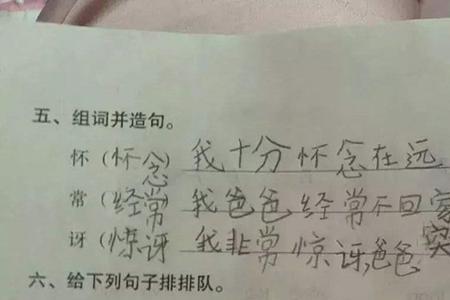 五、组词并造句。
怀（怀念）我十分怀念在远
常（经常）我爸爸经常不回家
讶（惊讶）我非常惊讶，爸爸突
六、给下列句子排排队。